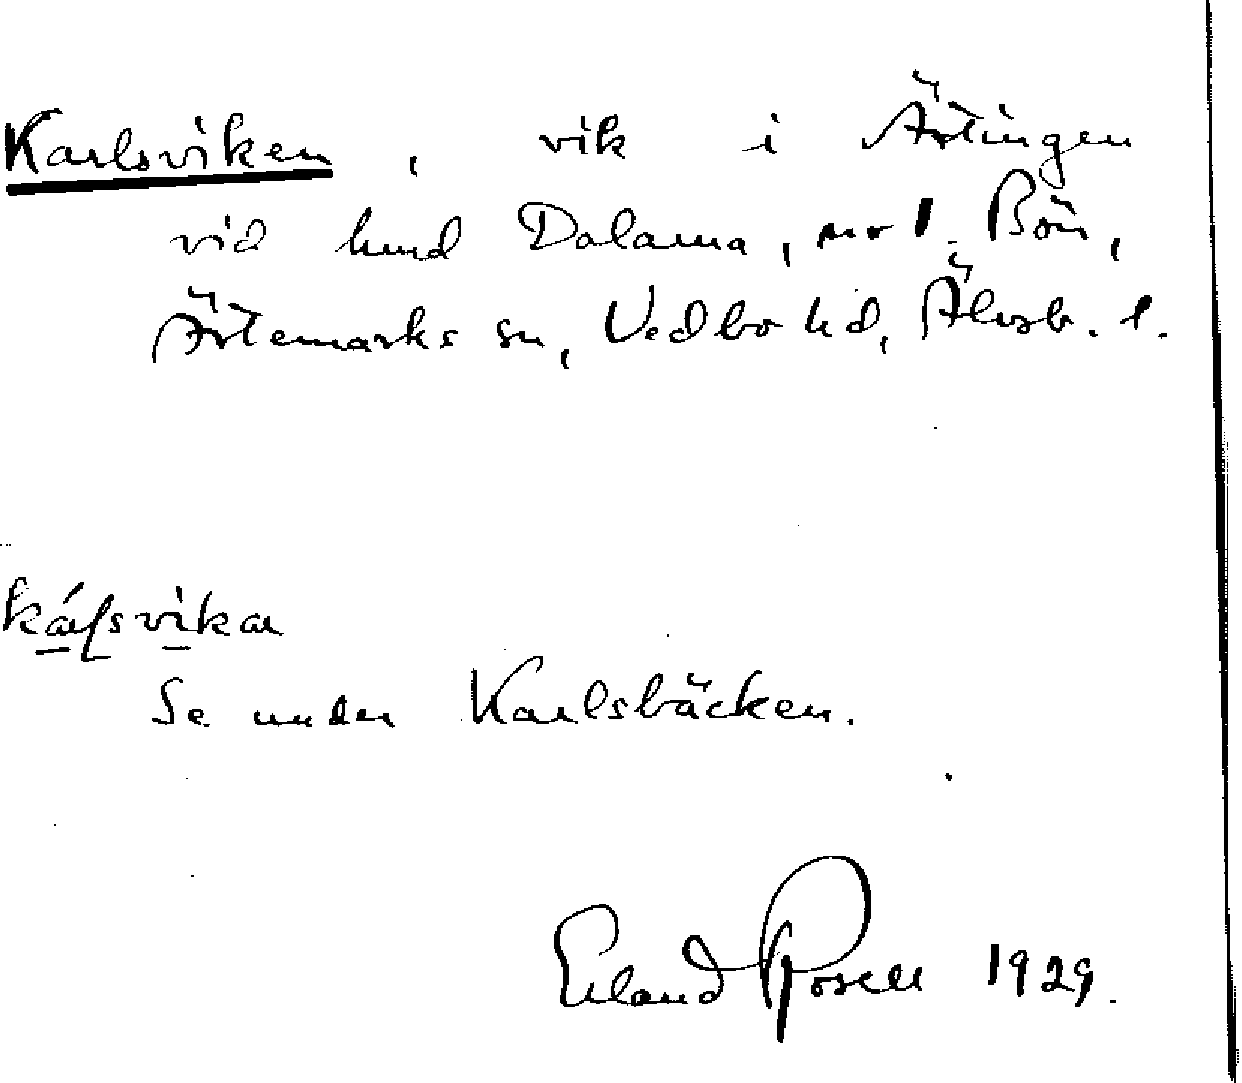 Karlsviken, vik i Ärtingen
vid hmd Dalarna, nr 1. Bön,
Ärtemarks sn, Vedbo hd, Älvsb. l.
káɭsvikaɹ
Se under Karlsbäcken.
Erland Rosell 1929.